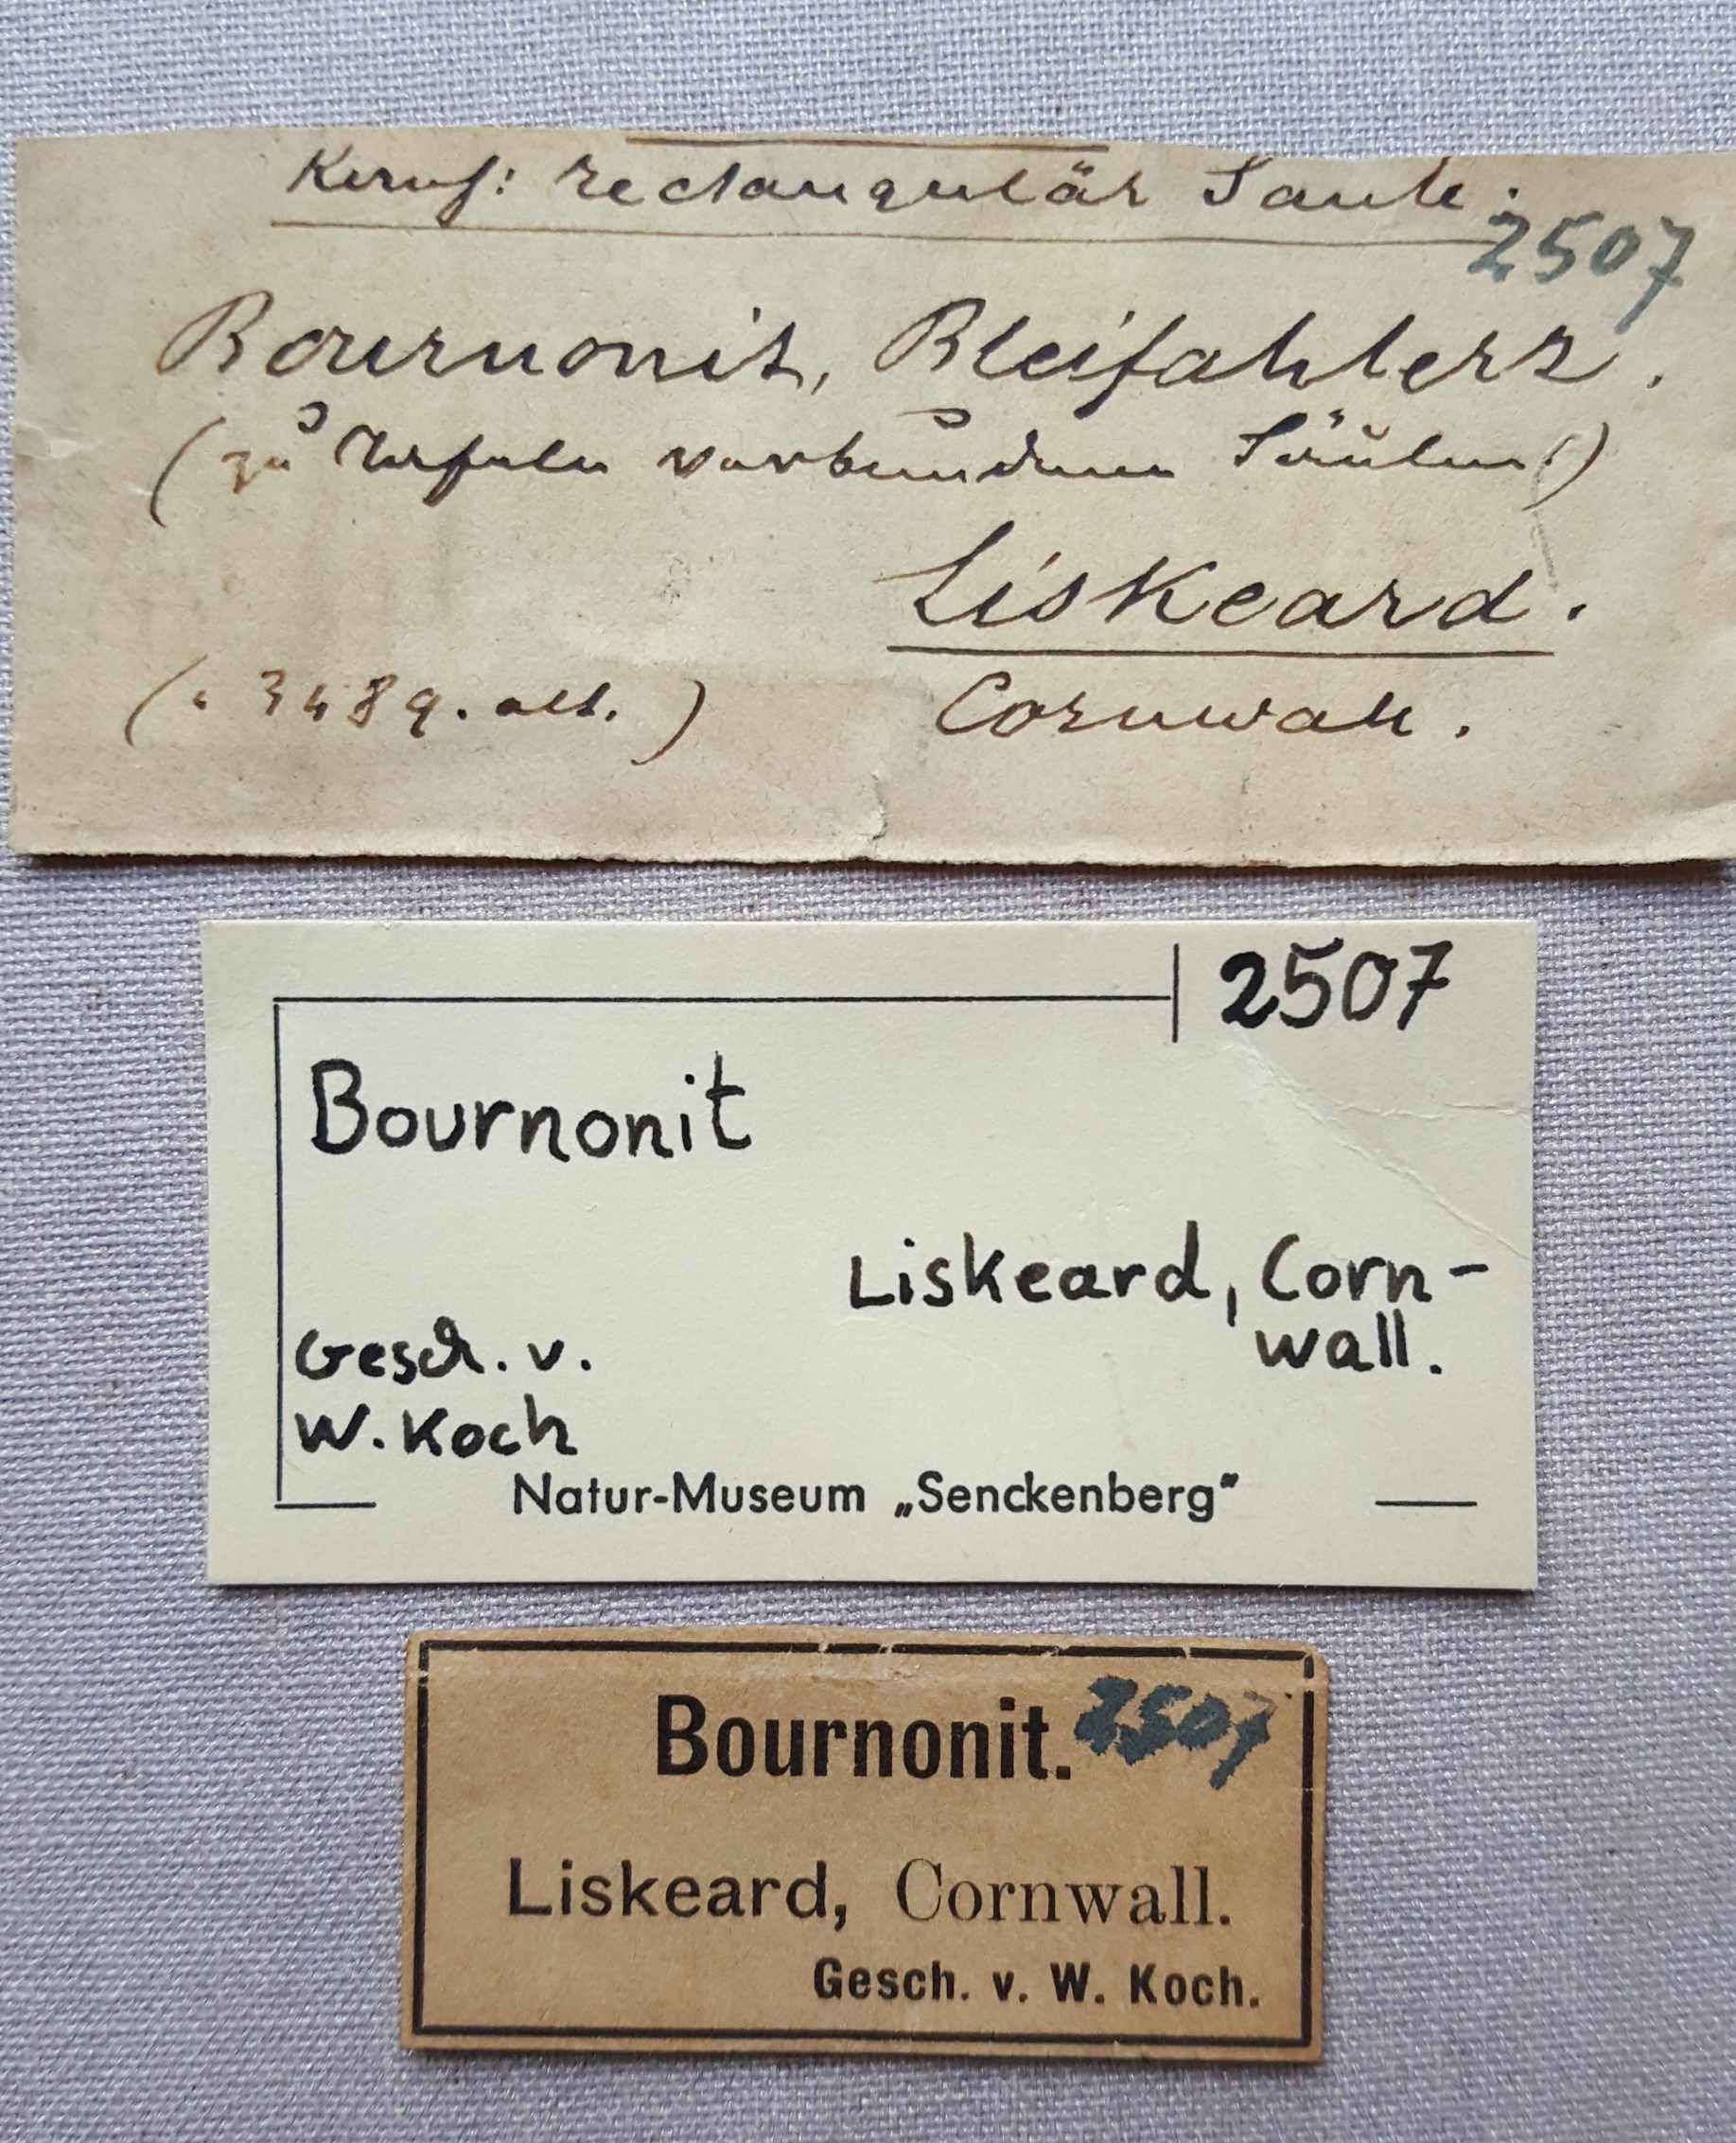 Kernf: rectangulär Säule.
2507
Bournonit, Bleifahlerz.
(zu Tafeln verbundene Säulen)
Liskeard.
Cornwall.
( 3489. alt. )
2507
Bournonit
Liskeard, Corn-
wall.
Gesch. v.
W. Koch
Natur-Museum „Senckenberg“
Bournonit. 2507
Liskeard, Cornwall.
Gesch. v. W. Koch.